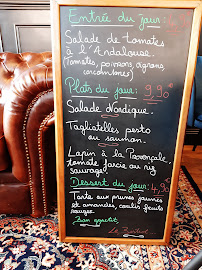 Entrée du jour:
Salade de tomates
à l'Andalouse
(Tomates, poivrons, oignons,
concombres)
Plats du jour: 9,90€
Salade Nordique.
Tagliatelles pesto
ou saumon.
Lapin à la Provençale,
tomate farcie au riz
sauvage.
Dessert du jour: 4,90
Tarte aux prunes jaunes
et amandes, coulis fruits
rouges.
Bon appétit